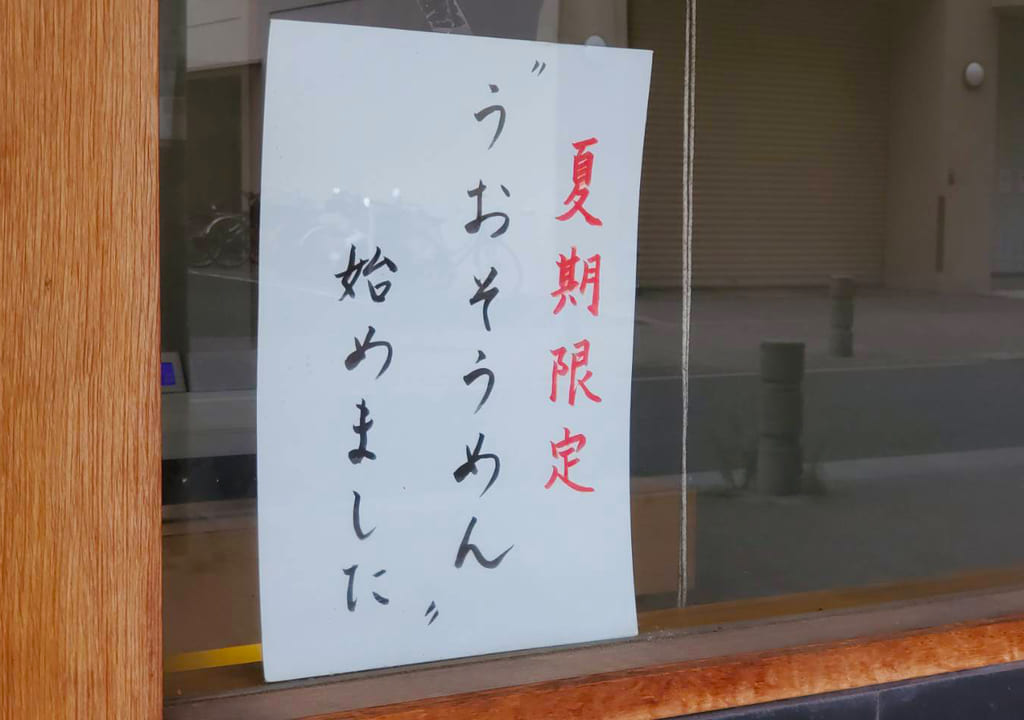 夏期限定
〝うおそうめん〟
始めました